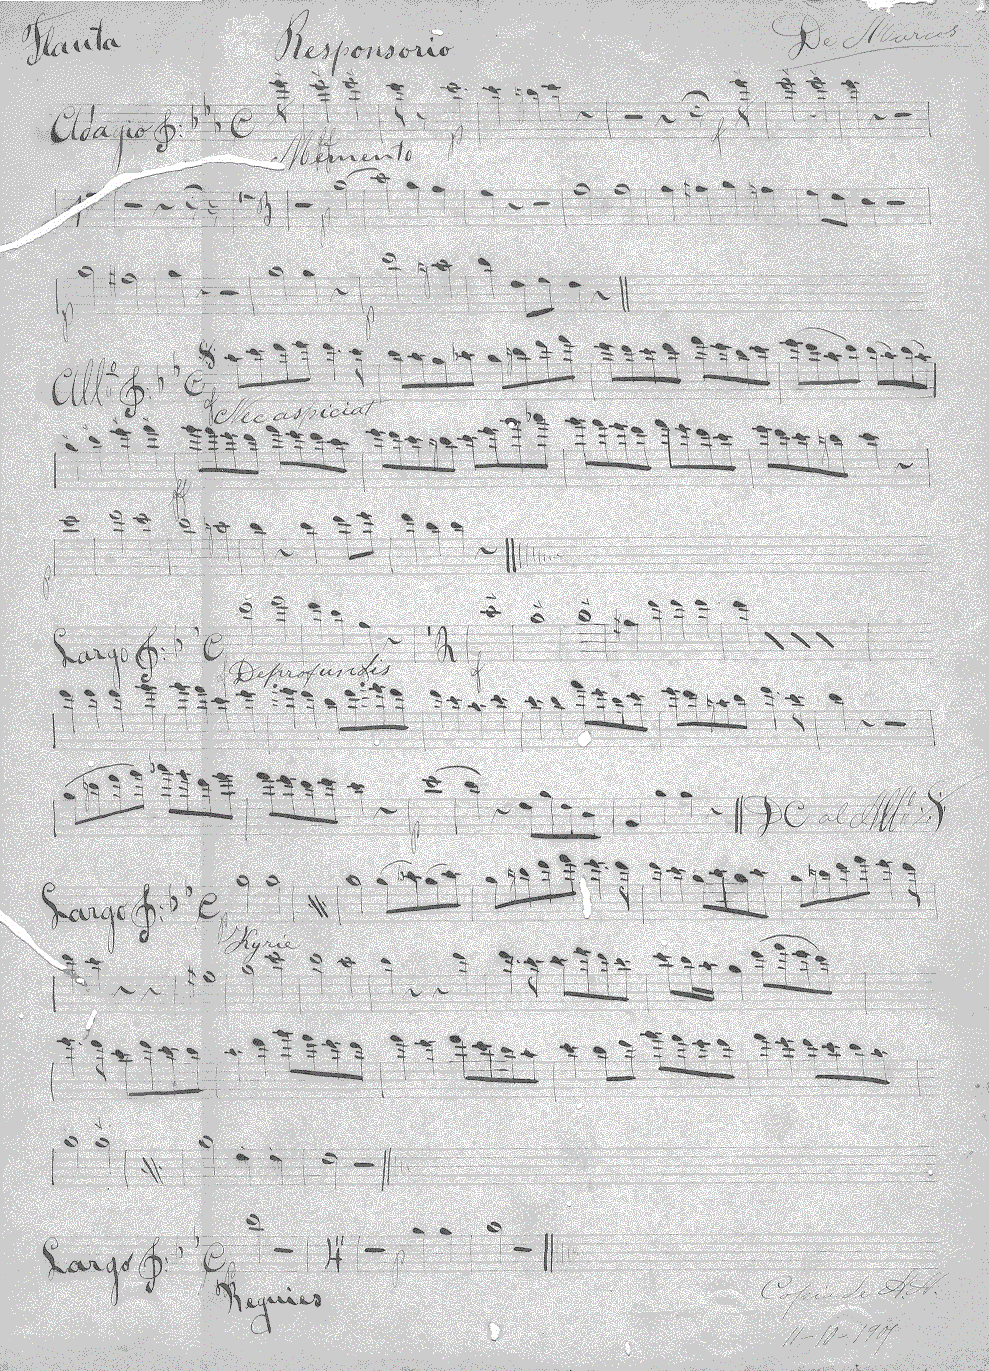 Flauta Responsorio De Marcos
Adagio
Memento
All.º
Nec aspiciat
ff
Largo
Deprofundis
DC al All.º
Largo
Kyrie
Largo
Requies
Copia de A.V.